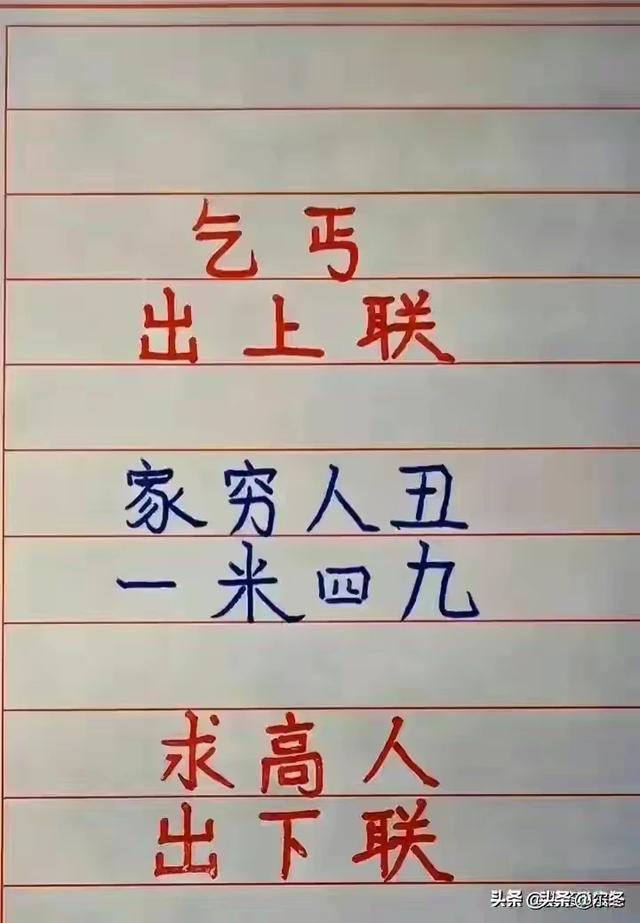 乞丐
出上联
家穷人丑
一米四九
求高人
出下联
头条 @